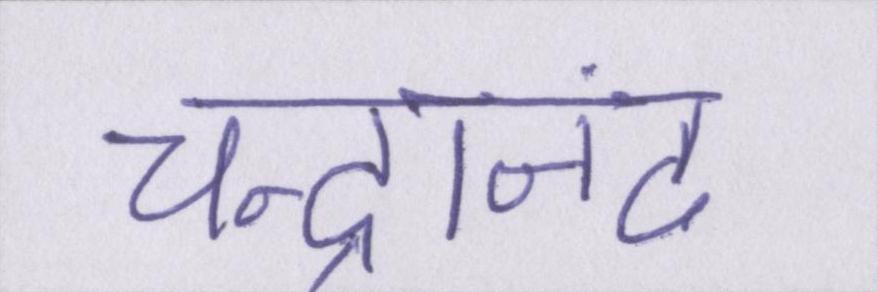 चन्द्रानंद